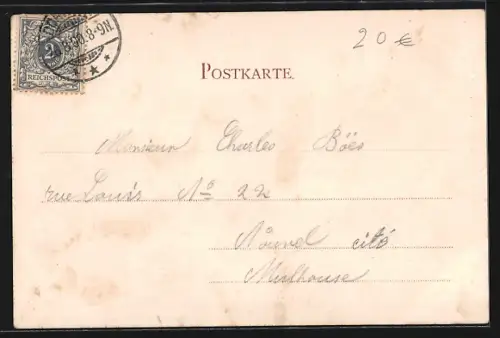 8-9N
2
REICHSPOST
20 €
POSTKARTE.
Monsieur Charles Böes
rue Louis No 22
Nouvel cité
Mulhouse